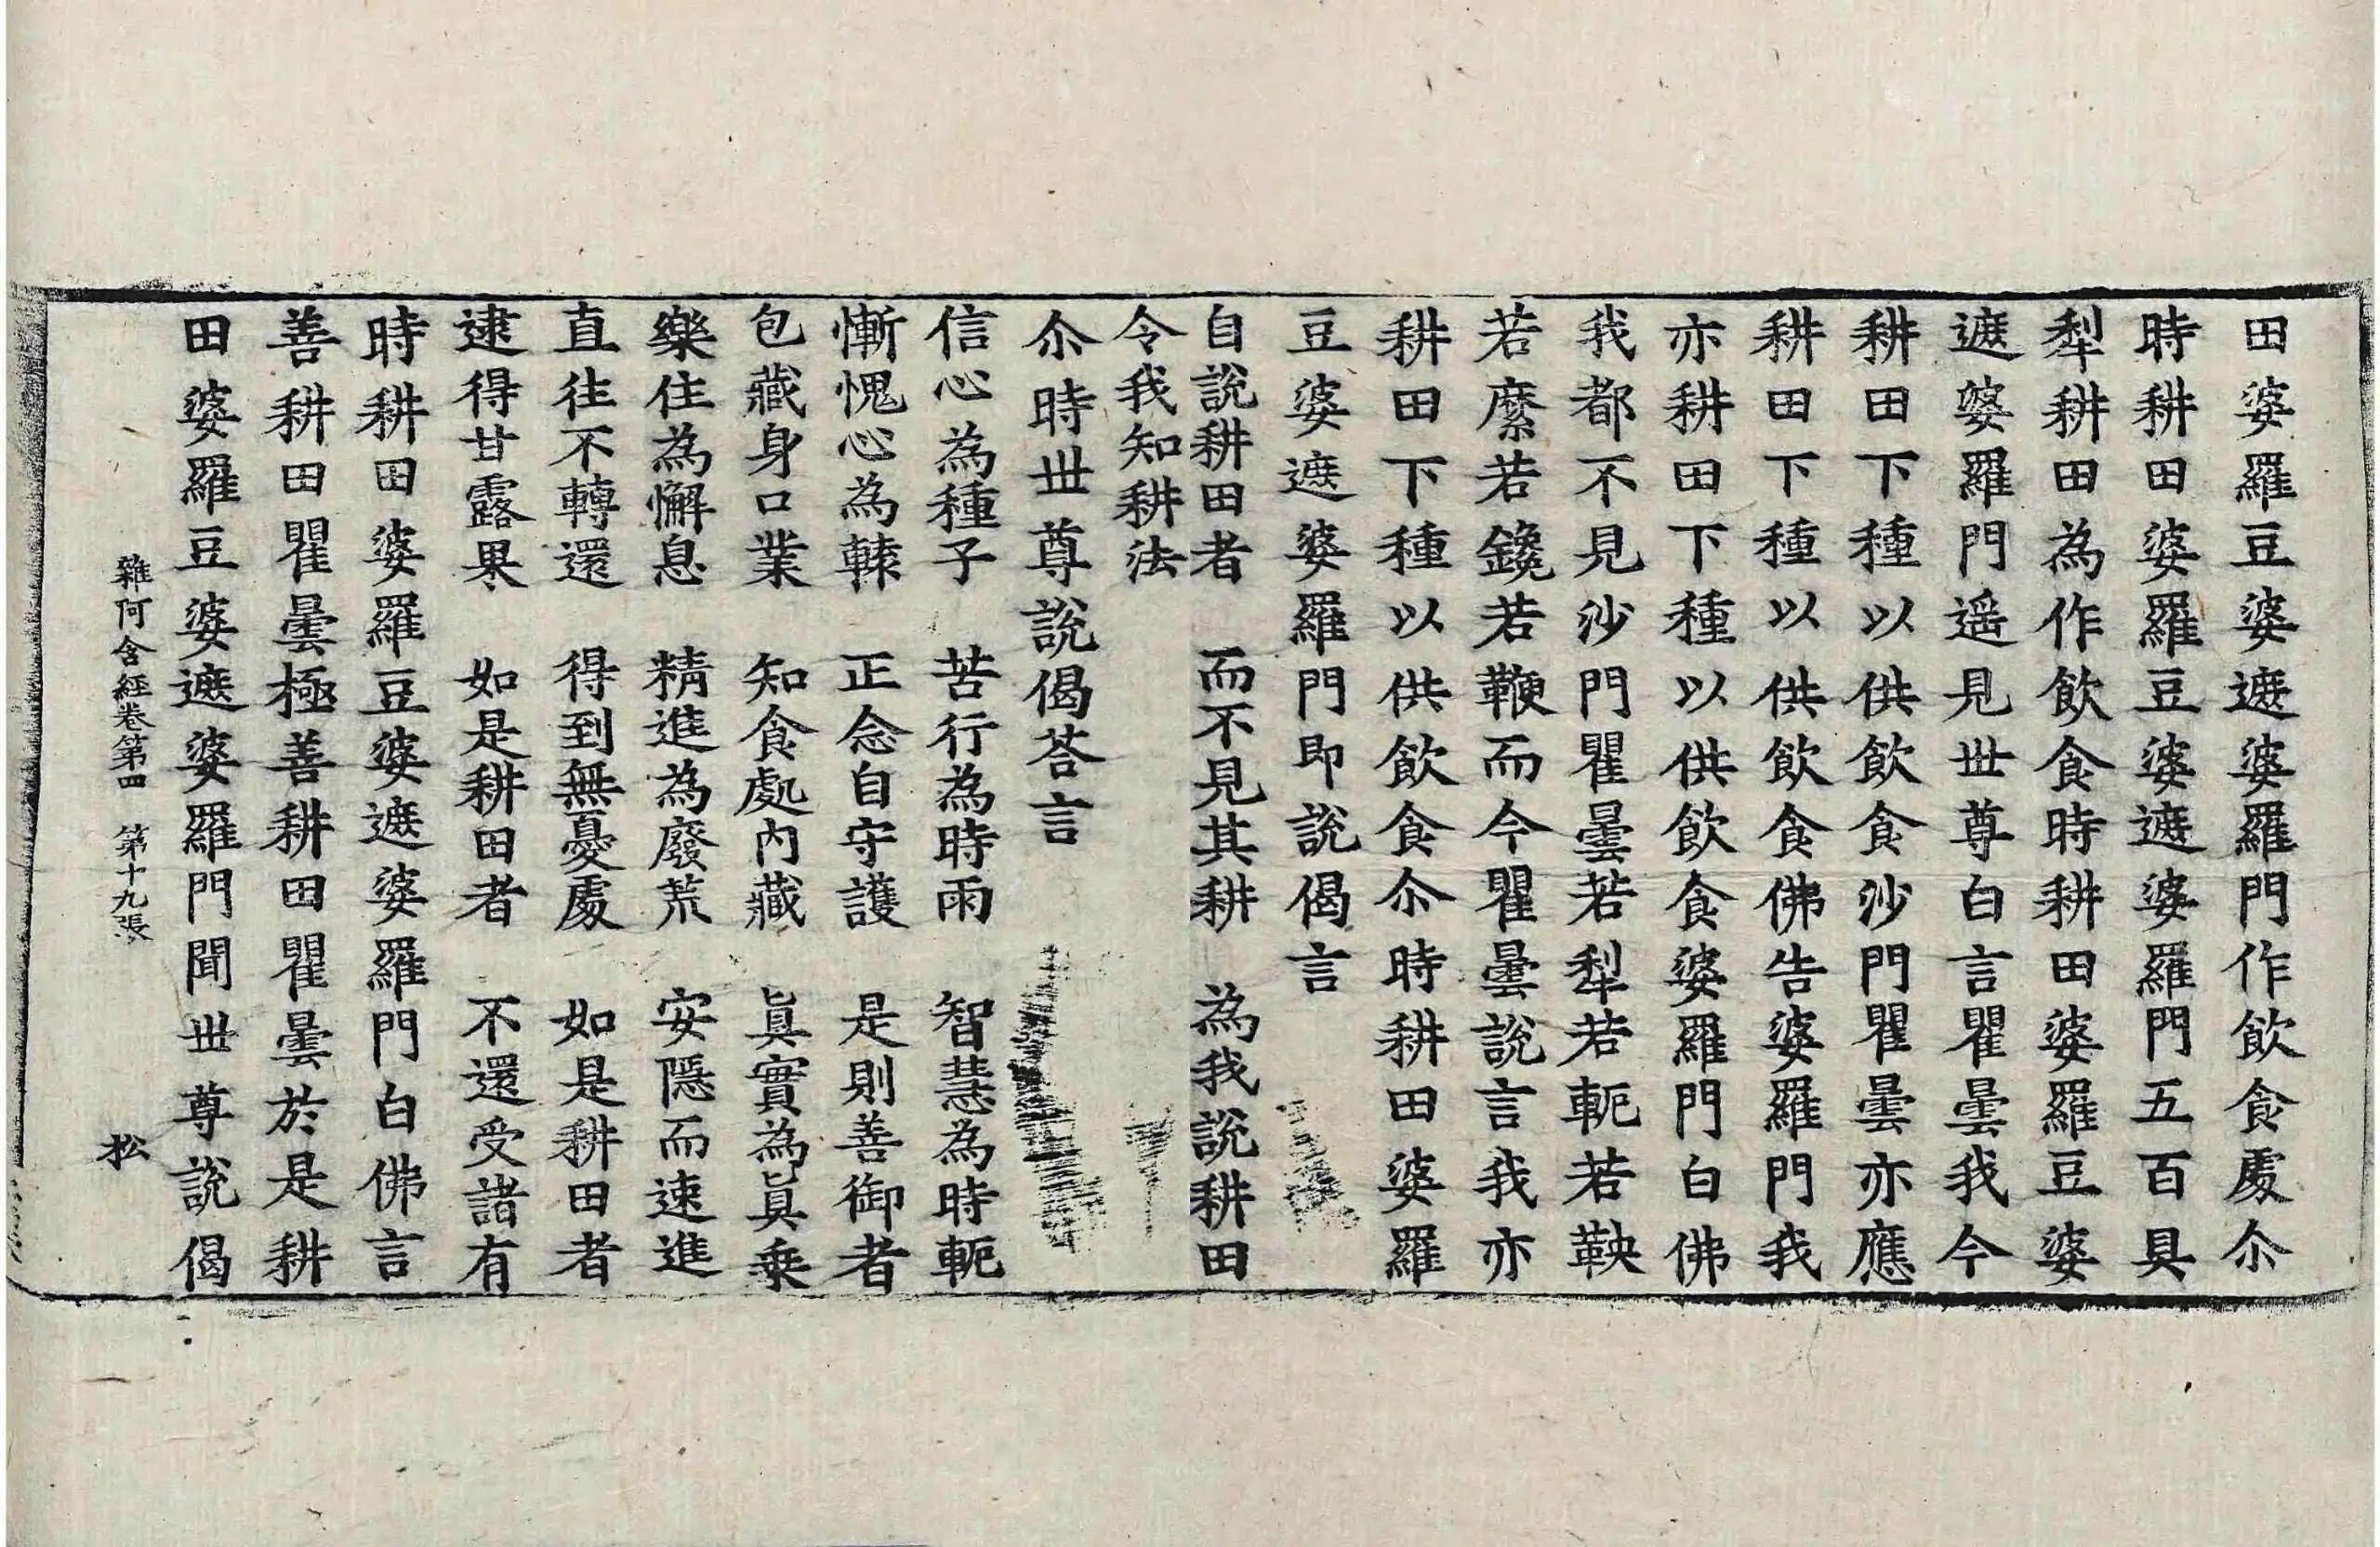 田婆羅豆婆遮婆羅門作飲食處尒
時耕田婆羅豆婆遮婆羅門五百具
犁耕田為作飲食時耕田婆羅豆婆
遮婆羅門遥見世尊白言瞿曇我今
耕田下種以供飲食沙門瞿曇亦應
耕田下種以供飲食佛告婆羅門我
亦耕田下種以供飲食婆羅門白佛
我都不見沙門瞿曇若犁若軛若鞅
若縻若鑱若鞭而今瞿曇說言我亦
耕田下種以供飲食尒時耕田婆羅
豆婆遮婆羅門即說偈言
自說耕田者　而不見其耕　為我說耕田
令我知耕法
尒時世尊說偈荅言
信心為種子　苦行為時雨　智慧為時軛
慚愧心為轅　正念自守護　是則善御者
包藏身口業　知食處內藏　眞實為眞乗
樂住為懈息　精進為廢荒　安隱而速進
直往不轉還　得到無憂處　如是耕田者
逮得甘露果　如是耕田者　不還受諸有
時耕田婆羅豆婆遮婆羅門白佛言
善耕田瞿曇極善耕田瞿曇於是耕
田婆羅豆婆遮婆羅門聞世尊說偈
雜阿含經卷第四　第十九張　松